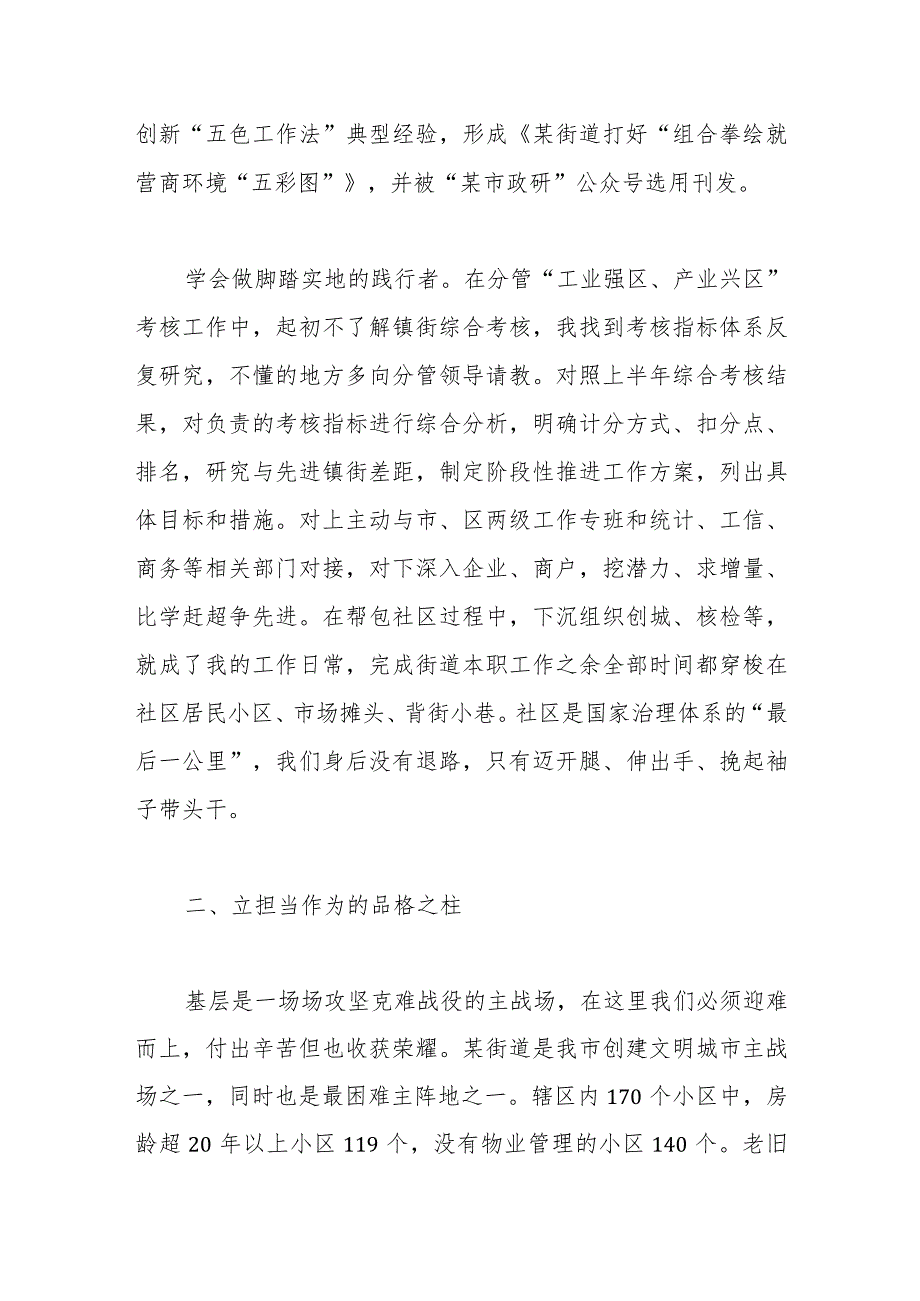 创新“五色工作法”典型经验，形成《某街道打好“组合拳绘就
营商环境“五彩图”》，并被“某市政研”公众号选用刊发。
学会做脚踏实地的践行者。在分管“工业强区、产业兴区”
考核工作中，起初不了解镇街综合考核，我找到考核指标体系反
复研究，不懂的地方多向分管领导请教。对照上半年综合考核结
果，对负责的考核指标进行综合分析，明确计分方式、扣分点、
排名，研究与先进镇街差距，制定阶段性推进工作方案，列出具
体目标和措施。对上主动与市、区两级工作专班和统计、工信、
商务等相关部门对接，对下深入企业、商户，挖潜力、求增量、
比学赶超争先进。在帮包社区过程中，下沉组织创城、核检等，
就成了我的工作日常，完成街道本职工作之余全部时间都穿梭在
社区居民小区、市场摊头、背街小巷。社区是国家治理体系的“最
后一公里”，我们身后没有退路，只有迈开腿、伸出手、挽起袖
子带头干。
二、立担当作为的品格之柱
基层是一场场攻坚克难战役的主战场，在这里我们必须迎难
而上，付出辛苦但也收获荣耀。某街道是我市创建文明城市主战
场之一，同时也是最困难主阵地之一。辖区内 170 个小区中，房
龄超 20 年以上小区 119 个，没有物业管理的小区 140 个。老旧